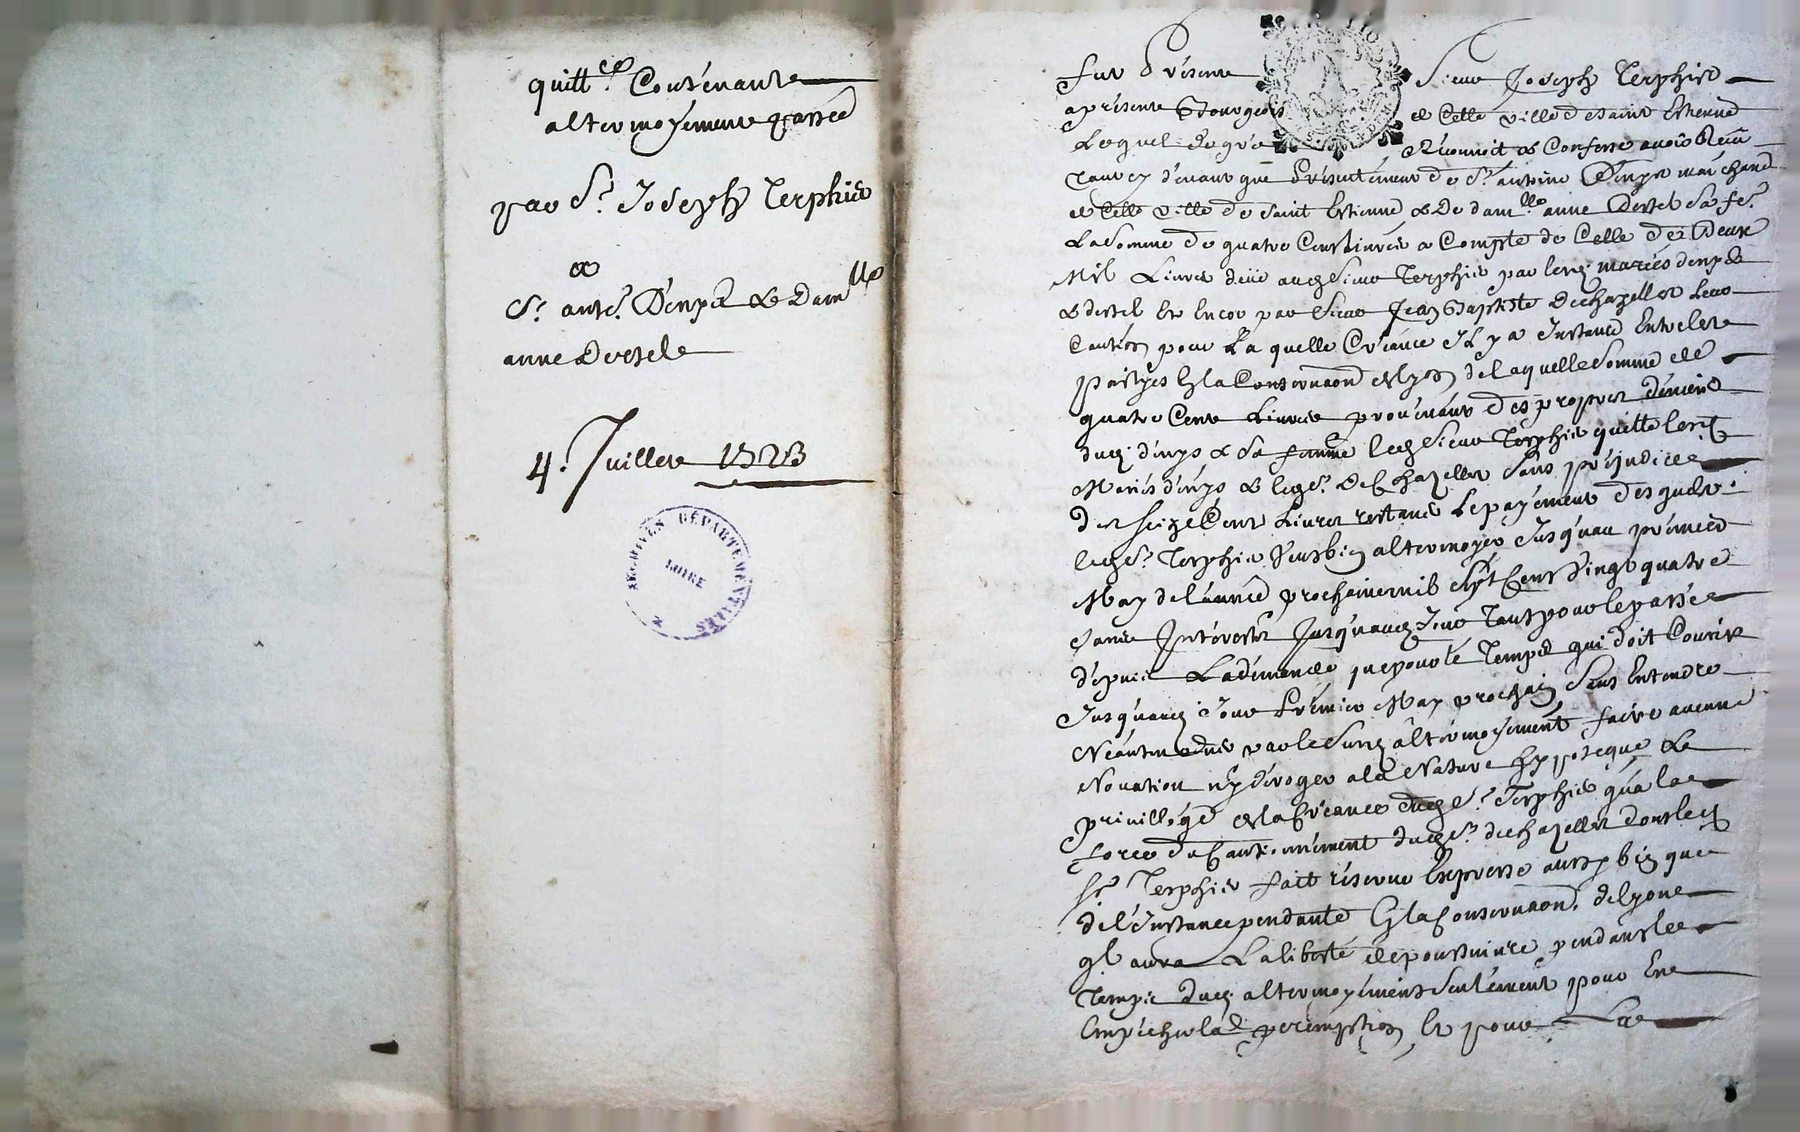 quitt.ce Contenante
altermoyement passée
par S.r Joseph Terphis
a
S.r ant.e Denps & Dam.lle
anne Dertel
4. Juillet 1723
ARCHIVES DÉPARTEMENTALES
LOIRE
fut Présent Sieur Joseph Terphis
a présent Bourgeois de Cette ville de saint Estienne
Lequel de gré Reconnoit & Confesse avoir Receu
tant cy devant que Présentement de S.r antoine Denps marchand
de Cette ville de saint Estienne & De dam.lle anne Dertel sa fe.
La somme de quatre Cent livres a Compte de Celle de Deux
Mil Livres deüe audt Sieur Terphis par lesd. mariés denps
& dertel Et Encor par Sieur Jean Baptiste Dechazelles Leur
Caution pour La quelle Créance Il y a Instance Entre les
partyes En la Conservaon de Lyon de laquelle somme de
quatre Cent Livres provenant des propres deniers
dud. denps & sa femme led. Sieur Terphis quitte lesd.
Mariés denps & led. S.r Dechazelles sans préjudice
des seize Cent Livres restants Le payement desquels
led. S.r Terphis veut bien altermoyer Jusqu'au premier
May de l'année prochaine mil sept Cent vingt quatre
sans Interests Jusqu'aud. Jour tant pour le passée
depuis La demande que pour le temps qui doit Courir
Jusqu'aud. Jour Premier May prochain sans Entendre
Néantmoins par le susd. altermoyement faire aucune
Novation ny déroger a la Nature hypoteque &
privillége de la Créance dud. S.r Terphis qu'a la
force du Cautionnement dud. S.r dechazelles dont led.
S.r Terphis fait réserve Expresse aussy bien que
de l'Instance pendante En la Conservaon de Lyon
qI aura La liberté de poursuivre pendant le
Temps dud. altermoyement seulement pour En
Empécher la peremption Et pour La